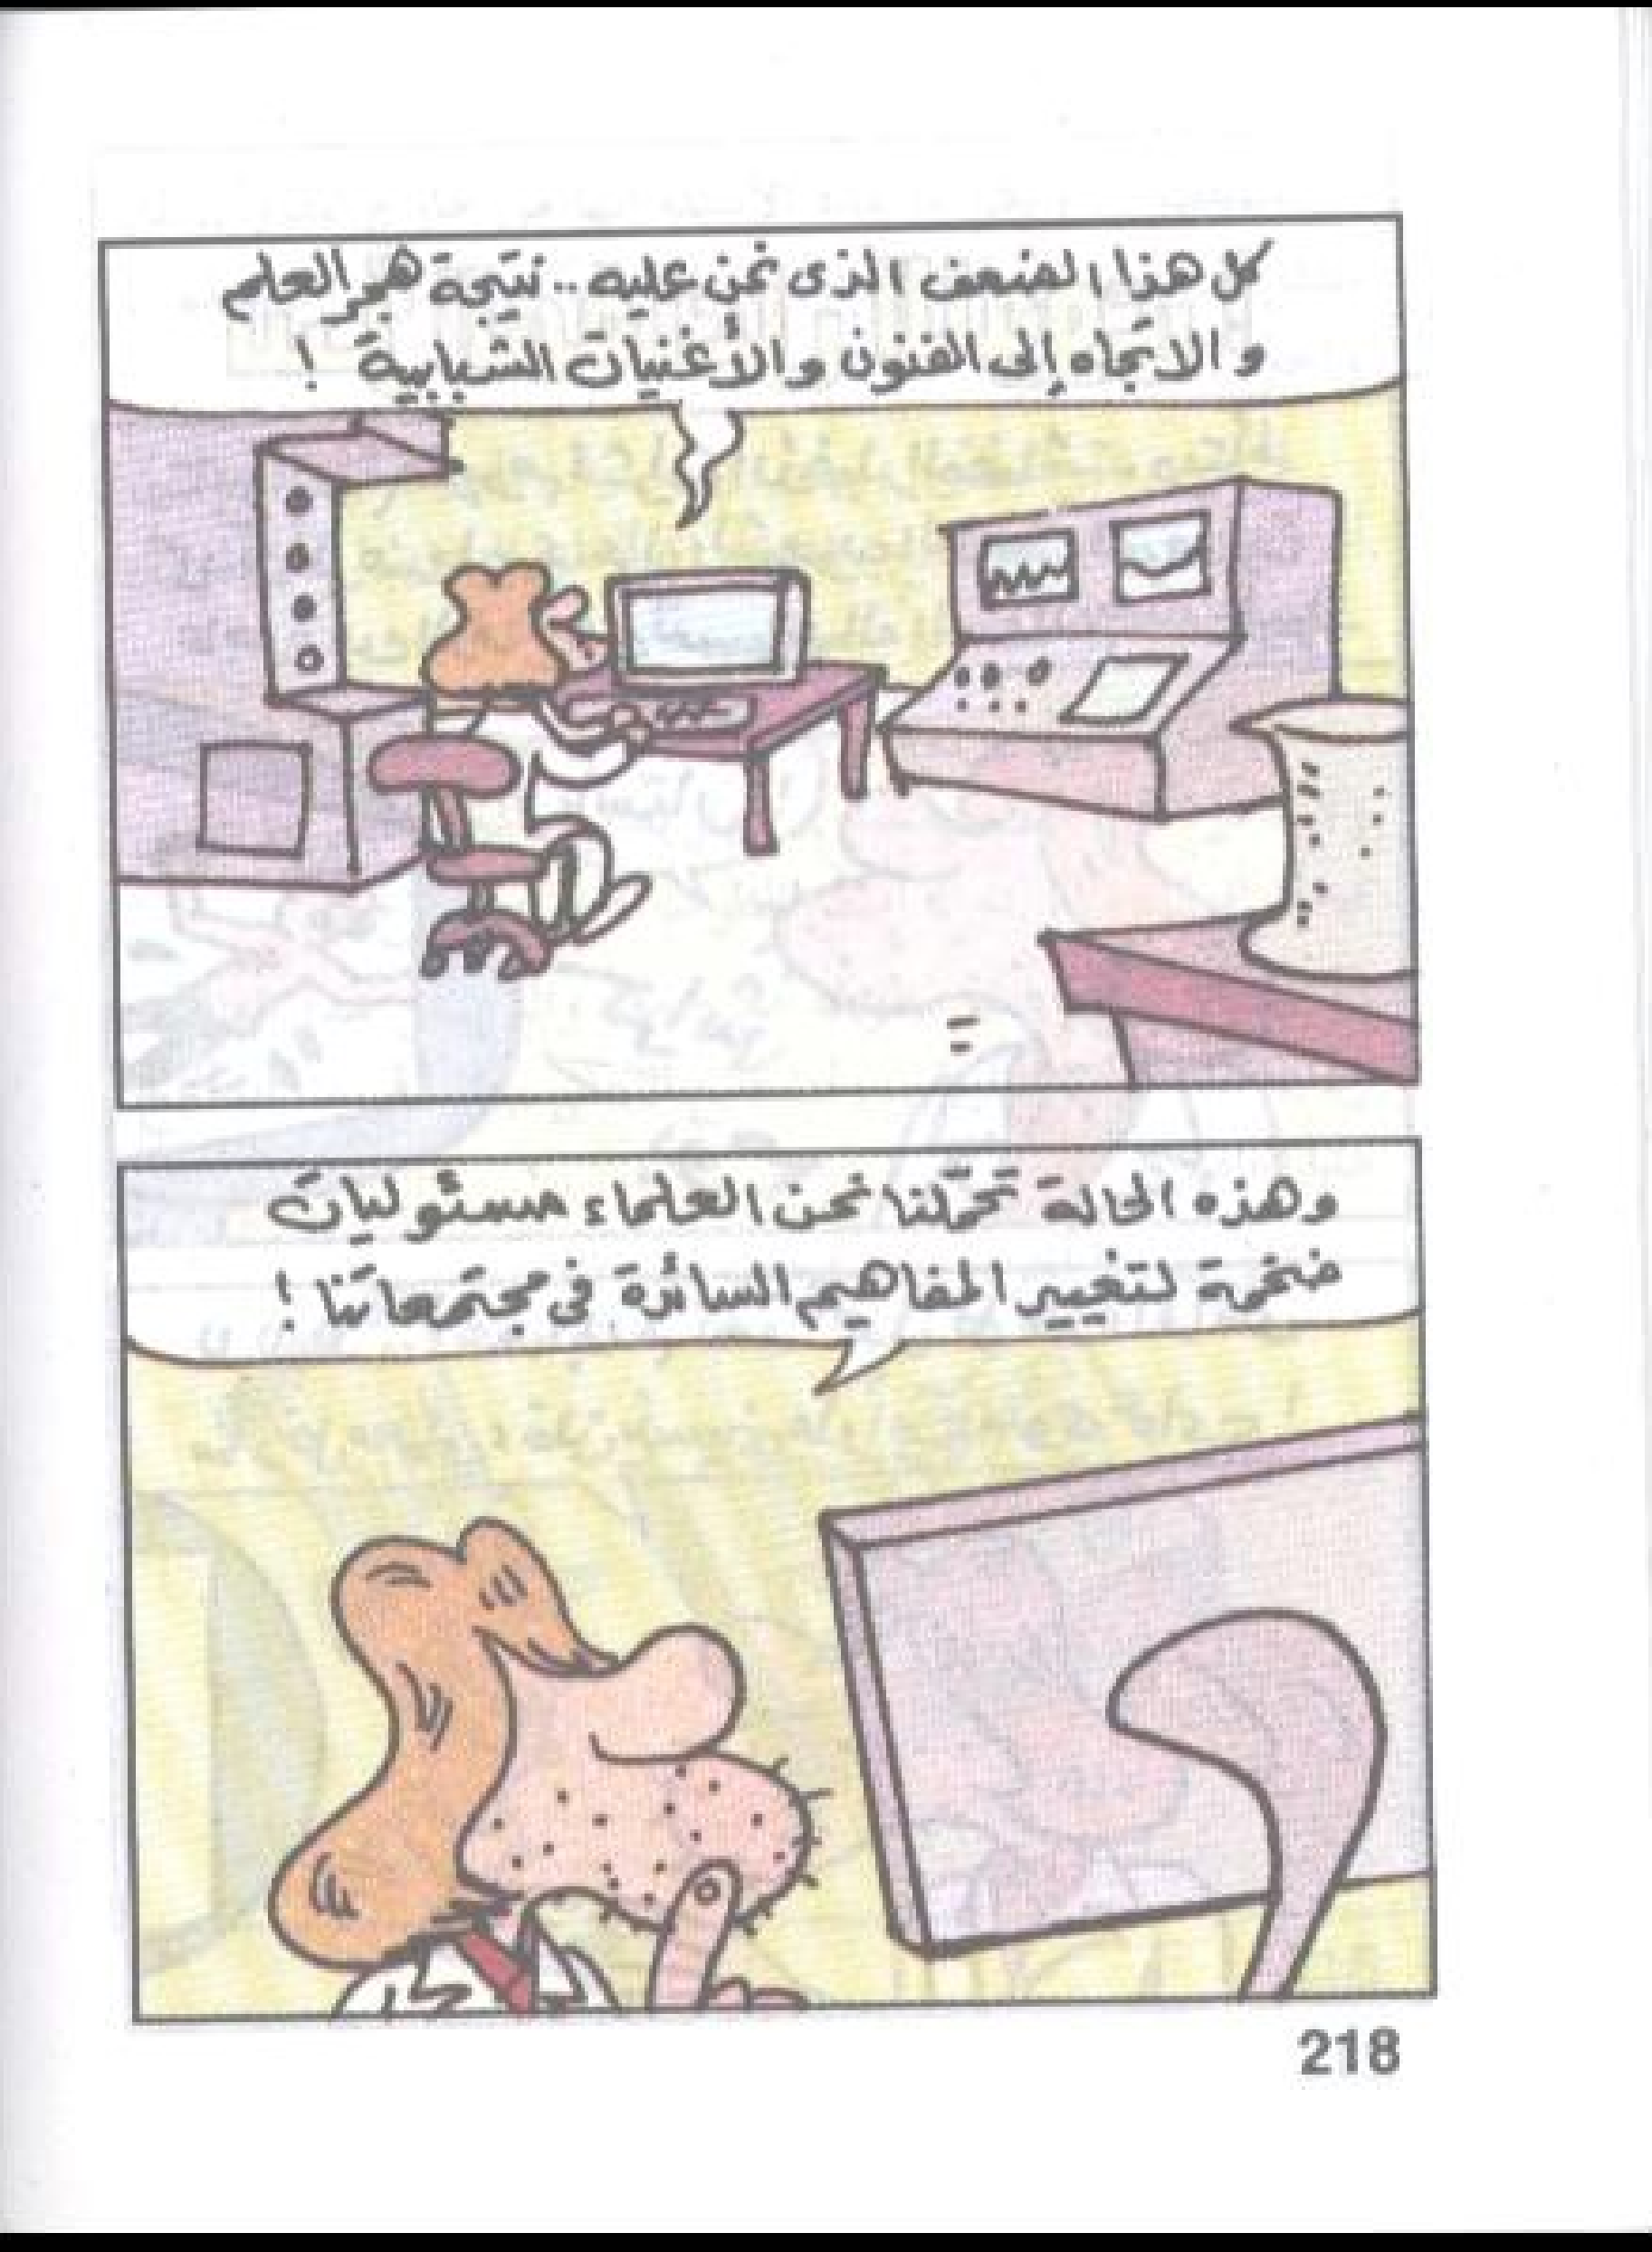 كل هذا الضعف الذى نحن عليه .. نتيجة هجر العلم
والاتجاه إلى الفنون والأغنيات الشبابية !
وهذه الحالة تحمّلنا نحن العلماء مسئوليات
ضخمة لتغيير المفاهيم السائدة فى مجتمعاتنا !
218